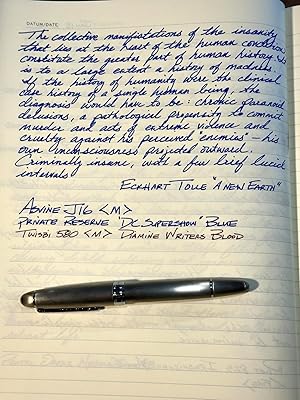 DATUM/DATE:
The collective manifestations of the insanity
that lies at the heart of the human condition
constitute the greater part of human history. It
is to a large extent a history of madness.
If the history of humanity were the clinical
case history of a single human being, the
diagnosis would have to be: chronic paranoid
delusions, a pathological propensity to commit
murder and acts of extreme violence and
cruelty against his perceived "enemies" – his
own unconsciousness projected outward.
Criminally insane, with a few brief lucid
intervals
ECKHART TOLLE "A NEW EARTH"
ASVINE J16 <M>
PRIVATE RESERVE "DC SUPERSHOW" BLUE
TWISBI 580 <M> DIAMINE WRITERS BLOOD